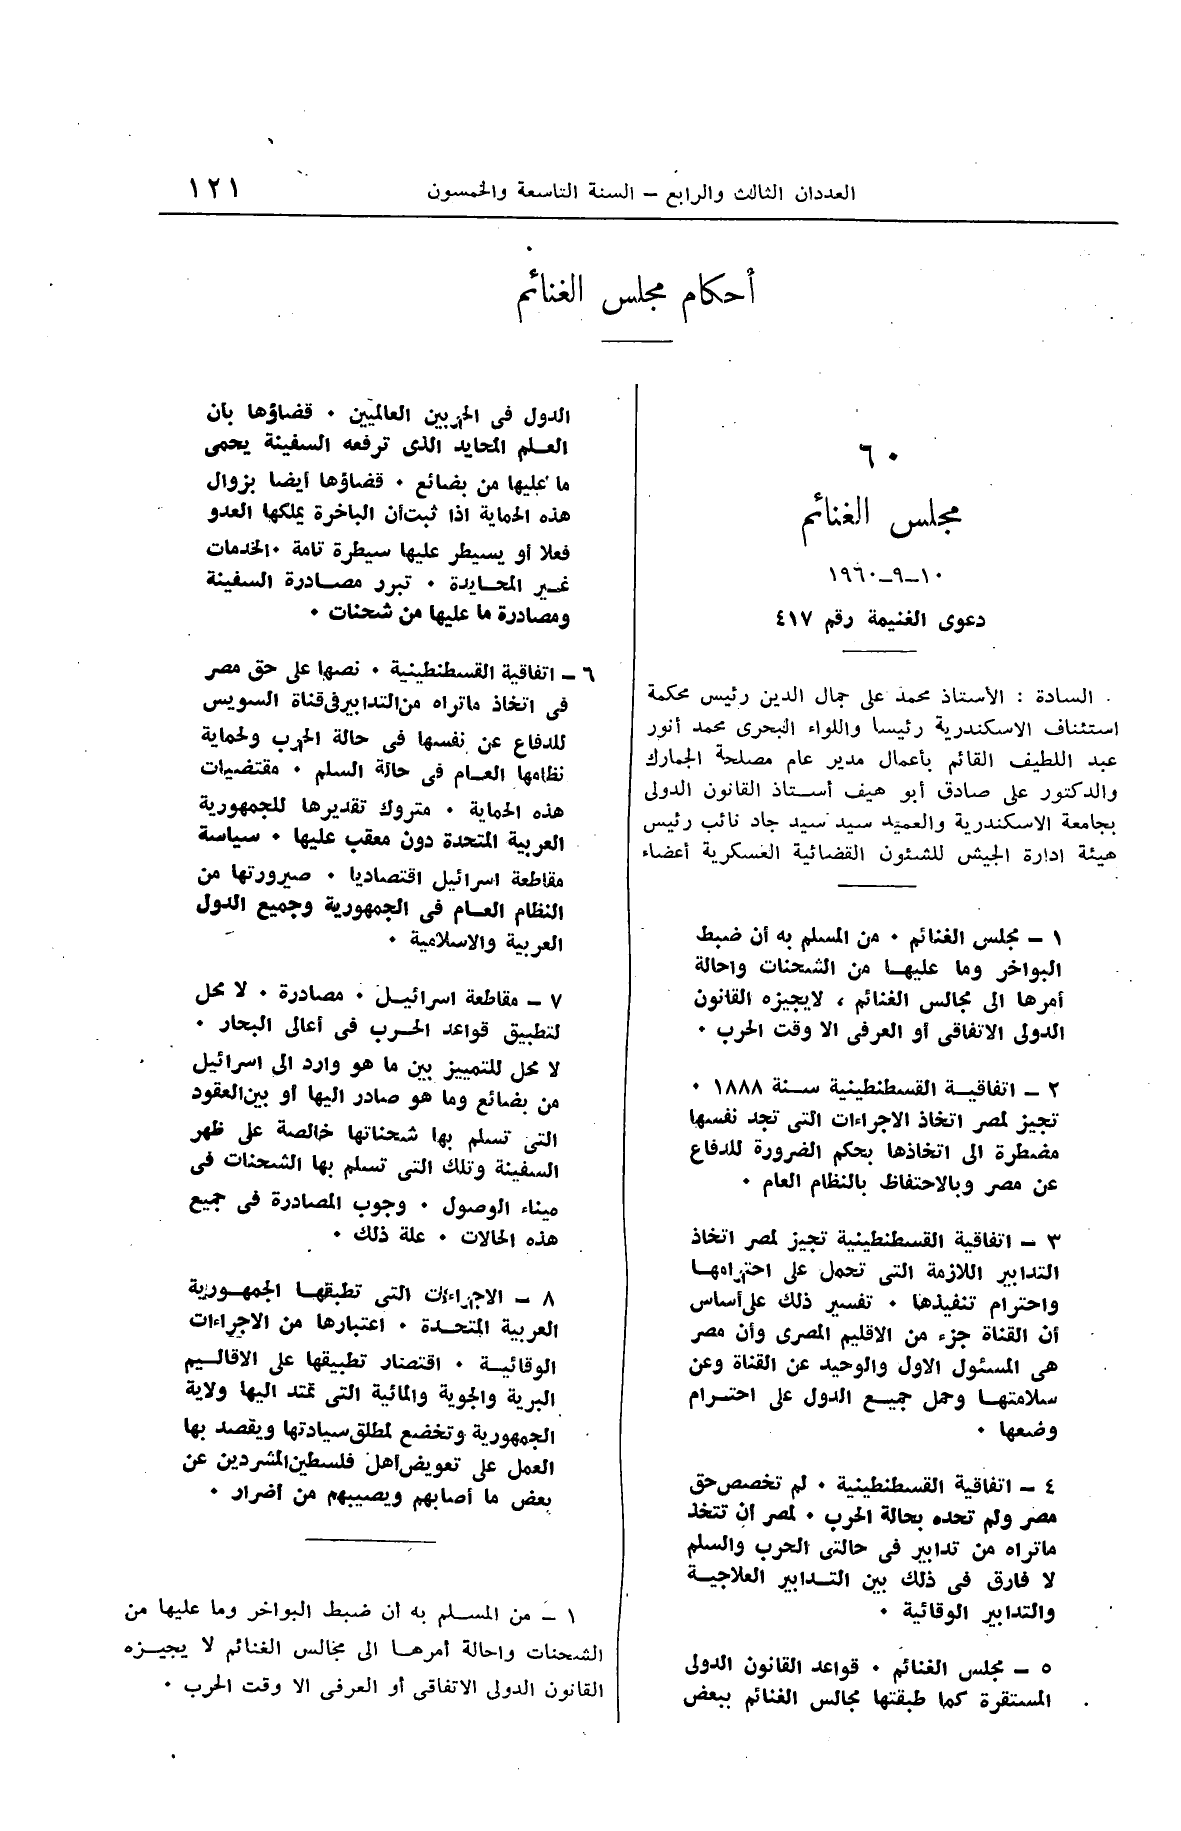 العددان الثالث والرابع – السنة التاسعة والخمسون
١٢١
أحكام مجلس الغنائم
٦٠
مجلس الغنائم
١٠-٩-١٩٦٠
دعوى الغنيمة رقم ٤١٧
السادة : الأستاذ محمد على جمال الدين رئيس محكمة
استئناف الاسكندرية رئيسا واللواء البحرى محمد أنور
عبد اللطيف القائم بأعمال مدير عام مصلحة الجمارك
والدكتور على صادق أبو هيف أستاذ القانون الدولى
بجامعة الاسكندرية والعميد سيد سيد جاد نائب رئيس
هيئة ادارة الجيش للشئون القضائية العسكرية أعضاء
١ – مجلس الغنائم ٠ من المسلم به أن ضبط
البواخر وما عليها من الشحنات واحالة
أمرها الى مجالس الغنائم ، لايجيزه القانون
الدولى الاتفاقى أو العرفى الا وقت الحرب ٠
٢ – اتفاقية القسطنطينية سنة ١٨٨٨ ٠
تجيز لمصر اتخاذ الاجراءات التى تجد نفسها
مضطرة الى اتخاذها بحكم الضرورة للدفاع
عن مصر وبالاحتفاظ بالنظام العام ٠
٣ – اتفاقية القسطنطينية تجيز لمصر اتخاذ
التدابير اللازمة التى تحمل على احترامها
واحترام تنفيذها ٠ تفسير ذلك على أساس
أن القناة جزء من الاقليم المصرى وأن مصر
هى المسئول الاول والوحيد عن القناة وعن
سلامتها وحمل جميع الدول على احترام
وضعها ٠
٤ – اتفاقية القسطنطينية ٠ لم تخصص حق
مصر ولم تحده بحالة الحرب ٠ لمصر أن تتخذ
ماتراه من تدابير فى حالتى الحرب والسلم
لا فارق فى ذلك بين التدابير العلاجية
والتدابير الوقائية ٠
٥ – مجلس الغنائم ٠ قواعد القانون الدولى
المستقرة كما طبقتها مجالس الغنائم ببعض
الدول فى الحربين العالميين ٠ قضاؤها بأن
العلم المحايد الذى ترفعه السفينة يحمى
ما عليها من بضائع ٠ قضاؤها أيضا بزوال
هذه الحماية اذا ثبت أن الباخرة يملكها العدو
فعلا أو يسيطر عليها سيطرة تامة ٠ الخدمات
غير المحايدة ٠ تبرر مصادرة السفينة
ومصادرة ما عليها من شحنات ٠
٦ – اتفاقية القسطنطينية ٠ نصها على حق مصر
فى اتخاذ ماتراه من التدابير فى قناة السويس
للدفاع عن نفسها فى حالة الحرب ولحماية
نظامها العام فى حالة السلم ٠ مقتضيات
هذه الحماية ٠ متروك تقديرها للجمهورية
العربية المتحدة دون معقب عليها ٠ سياسة
مقاطعة اسرائيل اقتصاديا ٠ صيرورتها من
النظام العام فى الجمهورية وجميع الدول
العربية والاسلامية ٠
٧ – مقاطعة اسرائيل ٠ مصادرة ٠ لا محل
لتطبيق قواعد الحرب فى أعالى البحار ٠
لا محل للتمييز بين ما هو وارد الى اسرائيل
من بضائع وما هو صادر اليها أو بين العقود
التى تسلم بها شحناتها خالصة على ظهر
السفينة وتلك التى تسلم بها الشحنات فى
ميناء الوصول ٠ وجوب المصادرة فى جميع
هذه الحالات ٠ علة ذلك ٠
٨ – الاجراءات التى تطبقها الجمهورية
العربية المتحدة ٠ اعتبارها من الاجراءات
الوقائية ٠ اقتصار تطبيقها على الاقاليم
البرية والجوية والمائية التى تمتد اليها ولاية
الجمهورية وتخضع لمطلق سيادتها ويقصد بها
العمل على تعويض أهل فلسطين المشردين عن
بعض ما أصابهم ويصيبهم من أضرار ٠
١ – من المسلم به أن ضبط البواخر وما عليها من
الشحنات واحالة أمرها الى مجالس الغنائم لا يجيزه
القانون الدولى الاتفاقى أو العرفى الا وقت الحرب ٠